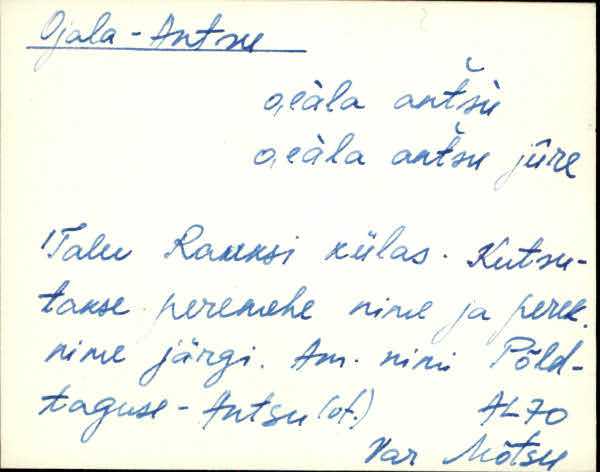 Ojala-Antsu
o̭eàla antšù
o̭eàla antšu jũre
Talu Rauksi külas. Kutsu-
takse peremehe nime ja perek.
nime järgi. Am. nimi Põld-
taguse-Antsu (vt.) AL 70
Var Mõtsu